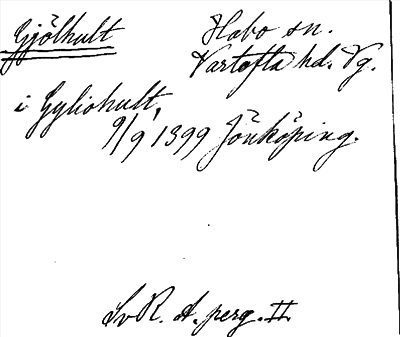 Gjölhult
Habo sn.
Vartofta hd. Vg.
i Gyliohult,
9/9 1399 Jönköping.
SvR. A. perg. II.